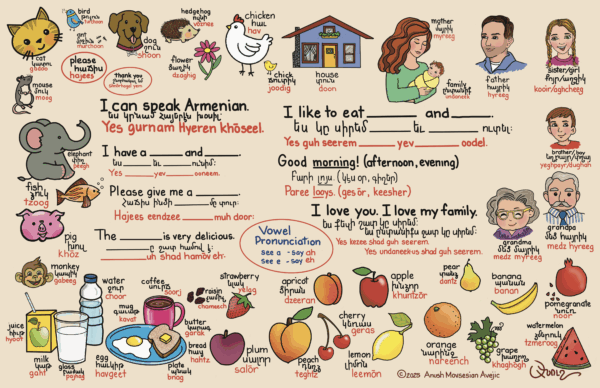 bird
թռչուն
cat
կատու
gadoo
dog
շուն
shoon
hedgehog
ոզնի
voznee
chicken
հաւ
hav
flower
ծաղիկ
dzaghig
chick
ճուտիկ
joodig
house
տուն
doon
mother
մայրիկ
myreeg
family
ընտանիք
father
հայրիկ
hyreeg
sister/girl
քոյր/աղջիկ
kooir/aghcheeg
please
հաճիս
hajees
thank you
mouse
մուկ
moog
elephant
փիղ
peegh
fish
ձուկ
tzoog
pig
խոզ
khoz
I can speak Armenian.
Ես կրնամ Հայերէն խօսիլ:
Yes gurnam Hyeren khoseel.
I have a ____ and ____.
Ես ____ եւ ____ ունիմ:
Yes ____ yev ____ ooneem.
Please give me a ____.
Հաճիս ինծի ____ մը տուր:
Hajees eendzee ____ muh door:
The ____ is very delicious.
____ը շատ համով է:
____uh shad hamov eh:
I like to eat ____ and ____.
Ես կը սիրեմ ____ եւ ____ ուտել:
Yes guh seerem ____ yev ____ oodel.
Good morning! (afternoon, evening)
Բարի լոյս. (կէսօր, գիշեր)
Paree looys. (gesor, keesher)
I love you. I love my family.
Ես քեզի շատ կը սիրեմ:
Ես ընտանիքս շատ կը սիրեմ:
Yes kezee shad guh seerem.
Yes undaneekus shad guh seerem.
Vowel
Pronunciation
see a - say ah
see e - say eh
brother/boy
yeghpayr/dughah
grandma
մեծ մայրիկ
medz myreeg
grandpa
մեծ հայրիկ
medz hyreeg
monkey
կապիկ
gabeeg
juice
հիւթ
hyoot
milk
կաթ
gaht
glass
water
ջուր
choor
coffee
սուրճ
soorj
mug
գաւաթ
kavat
raisin
չամիչ
chameech
strawberry
ելակ
yelag
butter
կարագ
garak
bread
հաց
hahtz
plate
պնակ
bnag
egg
հաւկիթ
havgeet
plum
սալոր
salor
apricot
ծիրան
dzeeran
peach
դեղձ
teghtz
cherry
կեռաս
gerras
apple
խնձոր
khuntzor
lemon
լիմոն
leemon
pear
տանձ
dantz
orange
նարինջ
nareench
banana
պանան
banan
grape
խաղող
khaghogh
pomegranate
նուռ
noor
watermelon
ձմերուկ
tzmeroog
©2025 Anush Movsesian Avejic